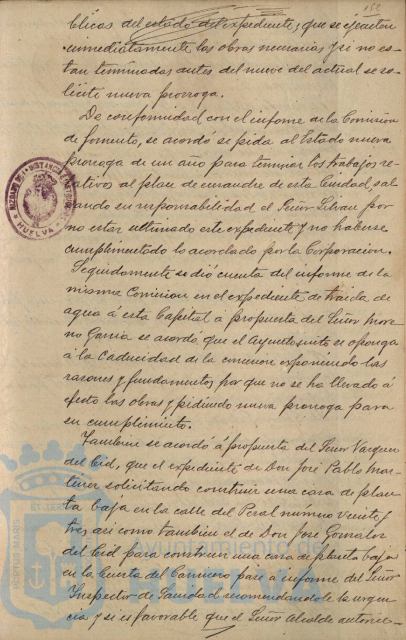 162
blicas del estado del expediente, que se ejecuten
inmediatamente las obras necesarias y si no es-
tan terminadas antes del nueve del actual se so-
licite nueva prorroga.
De conformidad con el informe de la Comision
de fomento, se acordó se pida al Estado nueva
prorroga de un año para terminar los trabajos re-
lativos al plan de ensanche de esta Ciudad, sal-
vando su responsabilidad el Señor por
no estar ultimado este expediente y no haberse
cumplimentado lo acordado por la Corporacion.
Seguidamente se dió cuenta del informe de la
misma Comision en el expediente de traida de
agua á esta Capital á propuesta del Señor More-
no Garcia se acordó que el Ayuntamiento se oponga
á la Caducidad de la concesion exponiendo las
razones y fundamentos por que no se ha llevado á
efecto las obras y pidiendo nueva prorroga para
su cumplimiento.
Tambien se acordó á propuesta del Señor Vazquez
del Cid, que el expediente de Don José Pablo Mar-
tinez solicitando construir una casa de plan-
ta baja en la calle del Peral número veinte y
tres, asi como tambien el de Don Jose Gonzalez
del Cid para construir una casa de planta baja
en la Cuesta del Carnicero pase a informe del Señor
Inspector de Sanidad recomendandole la urgen-
cia y si es favorable que el Señor Alcalde autorice
HUELVA
PORTUS MARIS